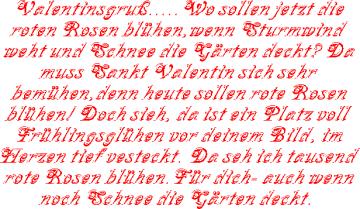 Valentinsgruß..... Wo sollen jetzt die
roten Rosen blühen,wenn Sturmwind
weht und Schnee die Gärten deckt? Da
muss Sankt Valentin sich sehr
bemühen,denn heute sollen rote Rosen
blühen! Doch sieh, da ist ein Platz voll
Frühlingsglühen vor deinem Bild, im
Herzen tief vesteckt. Da seh ich tausend
rote Rosen blühen. Für dich- auch wenn
noch Schnee die Gärten deckt.